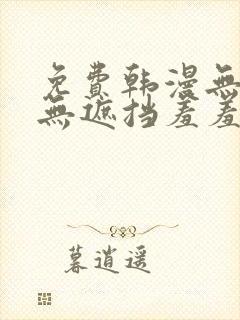 免费韩漫無
無遮挡羞羞
暮逍遥